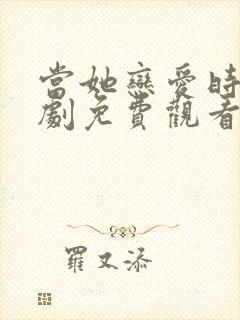 當她戀愛時
劇免費觀看
羅又添